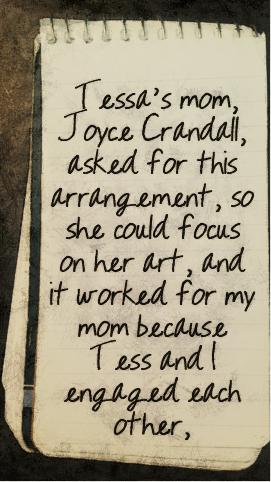 Tessa's mom,
Joyce Crandall,
asked for this
arrangement, so
she could focus
on her art, and
it worked for my
mom because
Tess and I
engaged each
other,